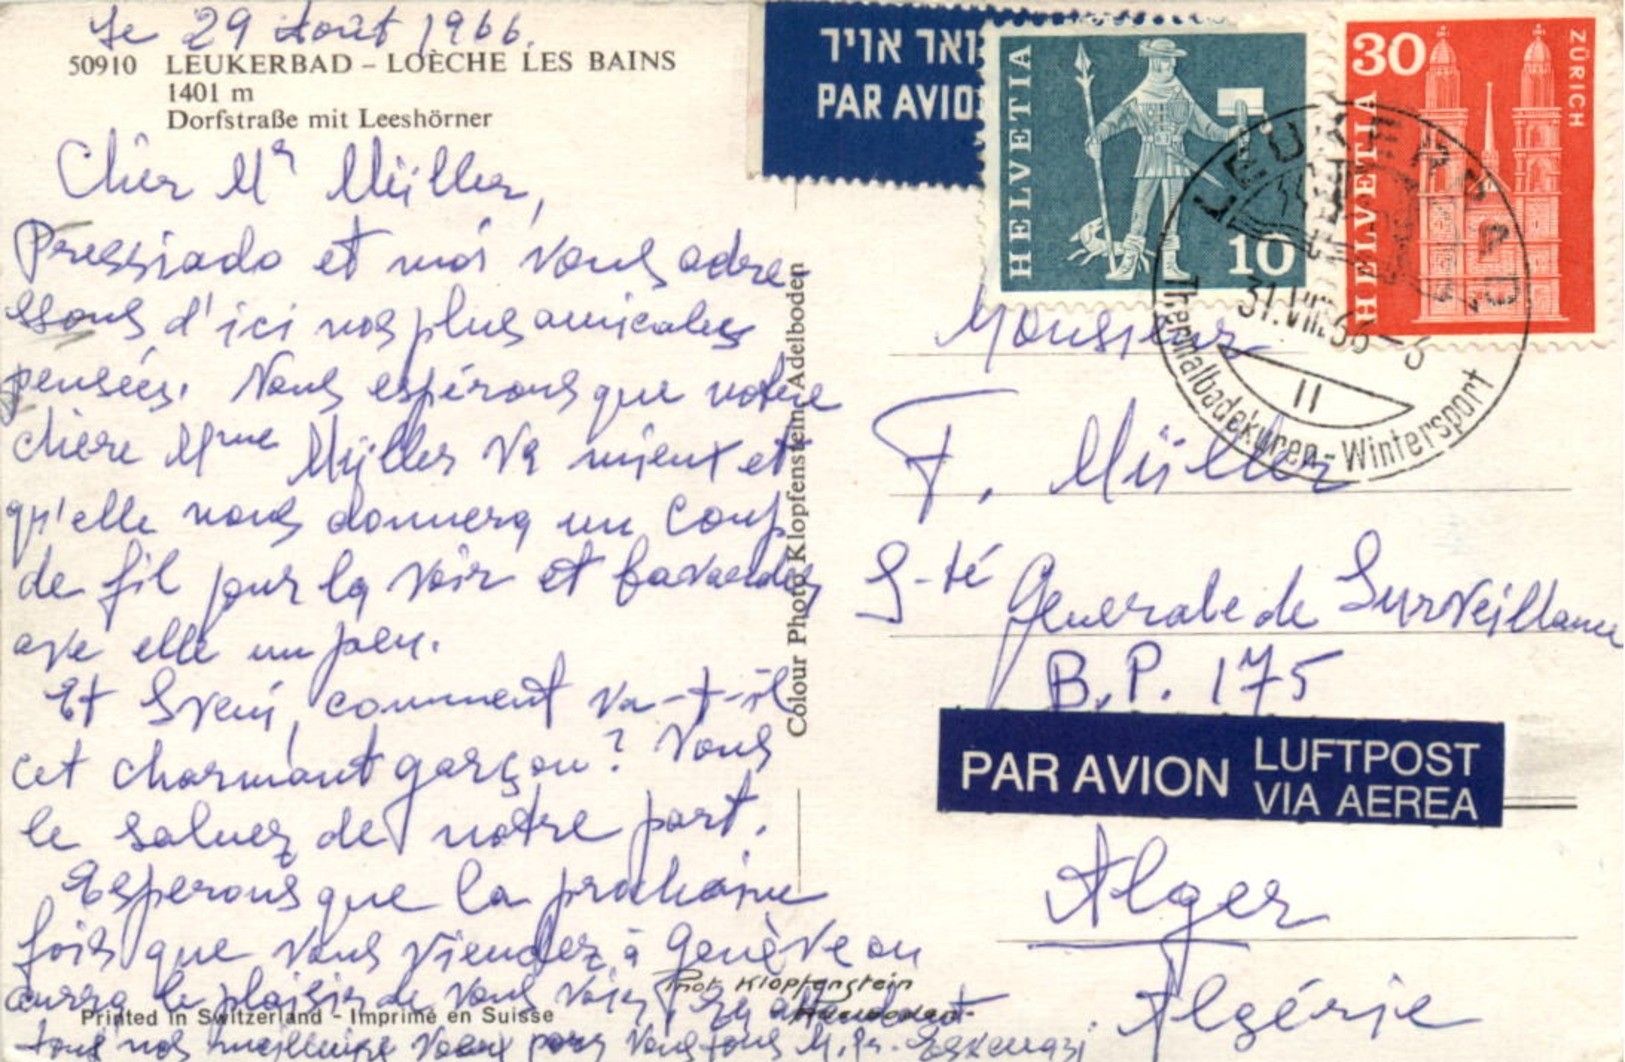 le 29 Août 1966.
50910 LEUKERBAD – LOÈCHE LES BAINS
1401 m
Dorfstraße mit Leeshörner
Chèr Mr Müller,
Pressiado et moi vous adre
ssons d'ici nos plus amicales
pensées. Nous espérons que votre
chère Mme Müller va mieux et
qu'elle nous donnera un coup
de fil pour la voir et bavarder
elle un peu.
Et comment va-t-il
cet charmant garçon? Vous
le saluez de notre part.
Esperons que la prochaine
fois que vous viendez à Genève on
aurra le plaisir de vous voir. En attendant
tous nos meilleurs voeux pour vous tous M. Eskenazi
Colour Photo Klopfenstein, Adelboden
Phot. Klopfenstein
Adelboden
Printed in Switzerland - Imprimé en Suisse
דואר אויר
PAR AVION
HELVETIA
10
30
ZÜRICH
HELVETIA
LEUKERBAD
31.VIII.66-6
II
Thermalbadekuren-Wintersport
Monsieur
F. Müller
S-té Generale de Surveillance
B.P. 175
PAR AVION LUFTPOST
VIA AEREA
Alger
Algérie